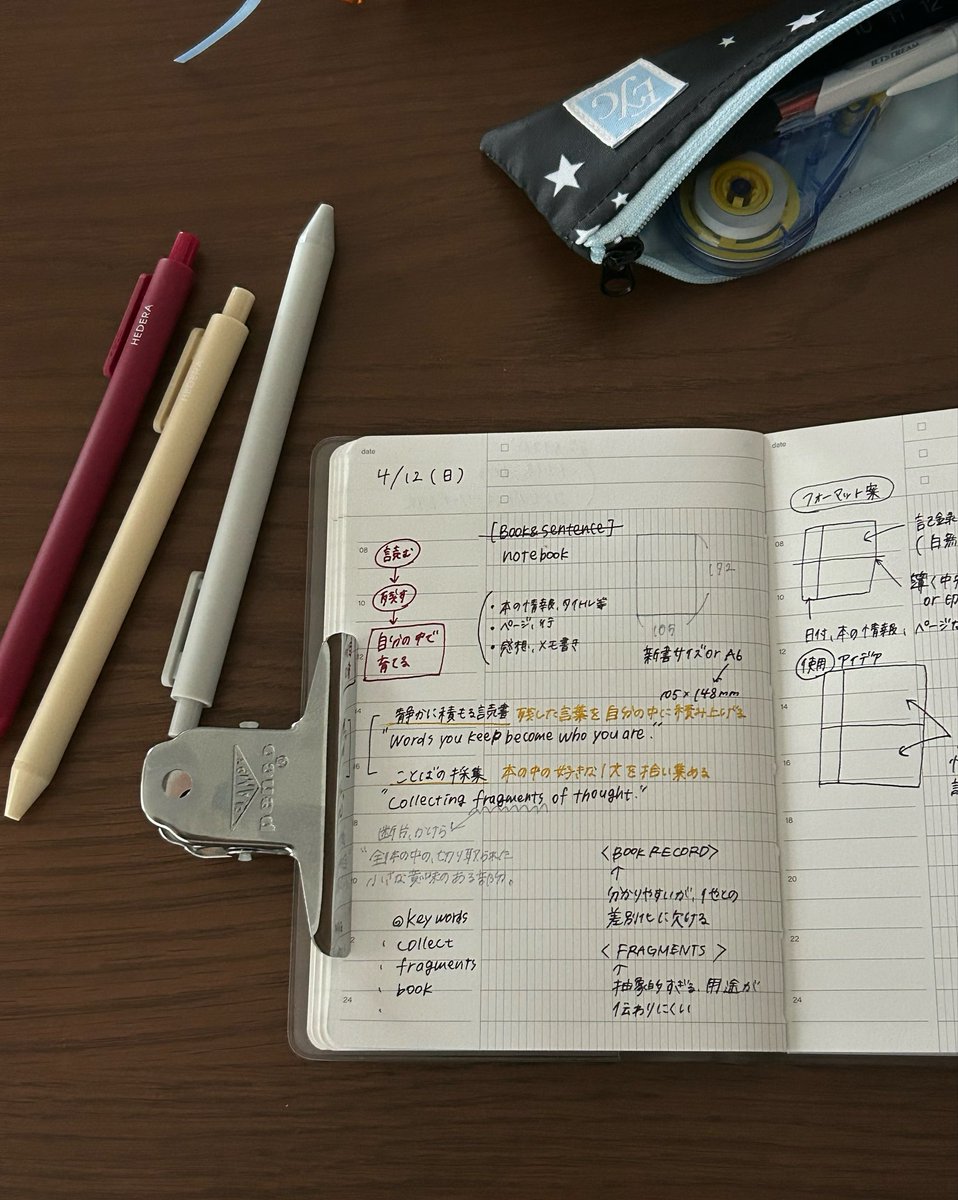 EYC
JETSTREAM
HEDERA
HEDERA
date
4/12(日)
[Book&sentence]
notebook
読む
残す
自分の中で
育てる
・本の情報、タイトル等
・ページ、行
・感想、メモ書き
172
105
新書サイズor A6
105×148mm
静かに積もる読書 残した言葉を自分の中に積み上げる
"Words you keep become who you are."
ことばの採集 本の中の好きな1文を拾い集める
"Collecting fragments of thought."
断片、かけら
"全体の中の、切り取られた
小さな意味のある部分。
@keywords
collect
fragments
book
<BOOK RECORD>
↑
分かりやすいが、他との
差別化に欠ける
<FRAGMENTS>
↑
抽象的すぎる、用途が
伝わりにくい
08
10
12
14
16
18
20
22
24
date
フォーマット案
記録
日付、本の情報、ページ
or 印
使用アイデア
08
10
12
14
16
20
22
24